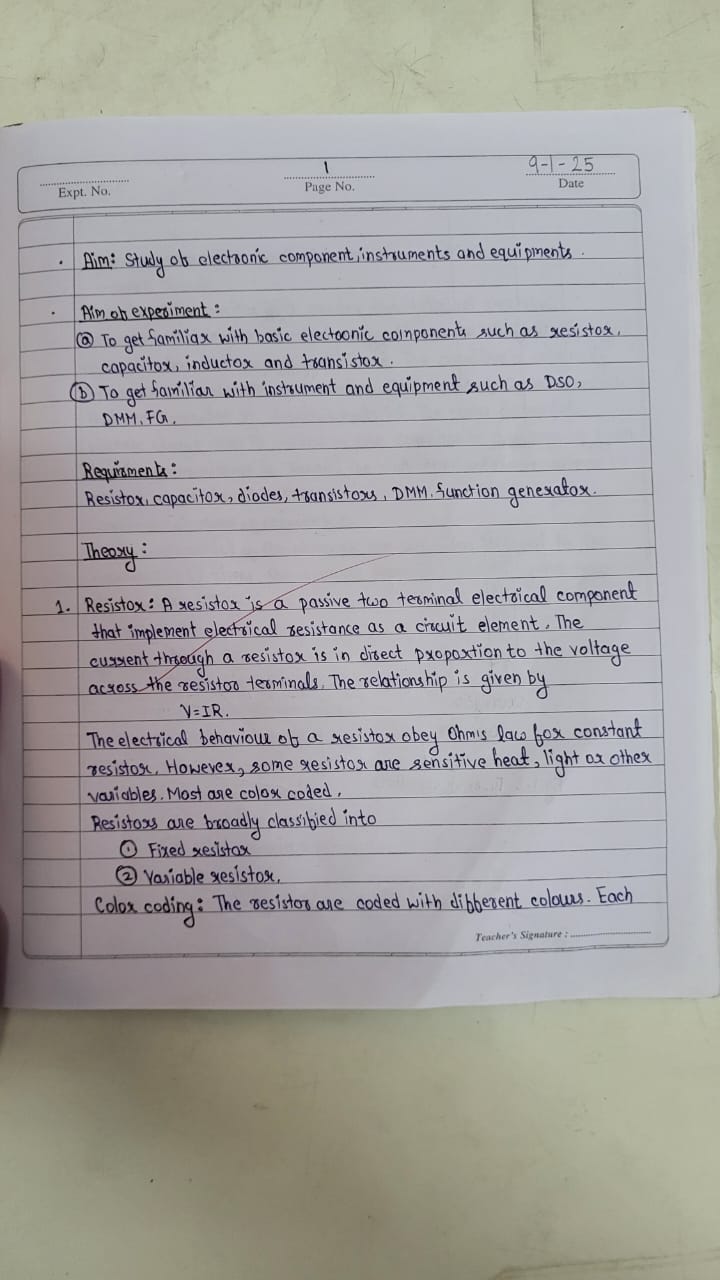 1
9-1-25
Expt. No.
Page No.
Date
. Aim: Study of electronic component, instruments and equipments.
. Aim of experiment:
ⓐ To get familiar with basic electronic components such as resistor,
capacitor, inductor and transistor.
ⓑ To get familiar with instrument and equipment such as DSO,
DMM, FG.
Requirments:
Resistor, capacitor, diodes, transistors, DMM. function generator.
Theory:
1. Resistor: A resistor is a passive two terminal electrical component
that implement electrical resistance as a circuit element. The
current through a resistor is in direct proportion to the voltage
across the resistor terminals. The relationship is given by
V=IR.
The electrical behaviour of a resistor obey Ohm's law for constant
resistor. However, some resistor are sensitive heat, light or other
variables. Most are color coded.
Resistors are broadly classified into
① Fixed resistor
② Variable resistor.
Color coding: The resistor are coded with different colours. Each
Teacher's Signature :